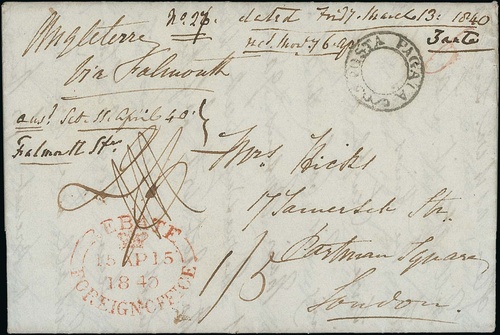 Angleterre
No. 26. dated Fridy. March 13: 1840
recd. Mondy 6. Ap
Zante
via Falmouth
POSTA PAGATA
ansd. Sat. 11. April 40.
Falmouth Str.
Mrs. Hicks
17 Somerset Str.
Portman Square
London.
1/5
15 AP 15
1840
FOREIGN OFFICE